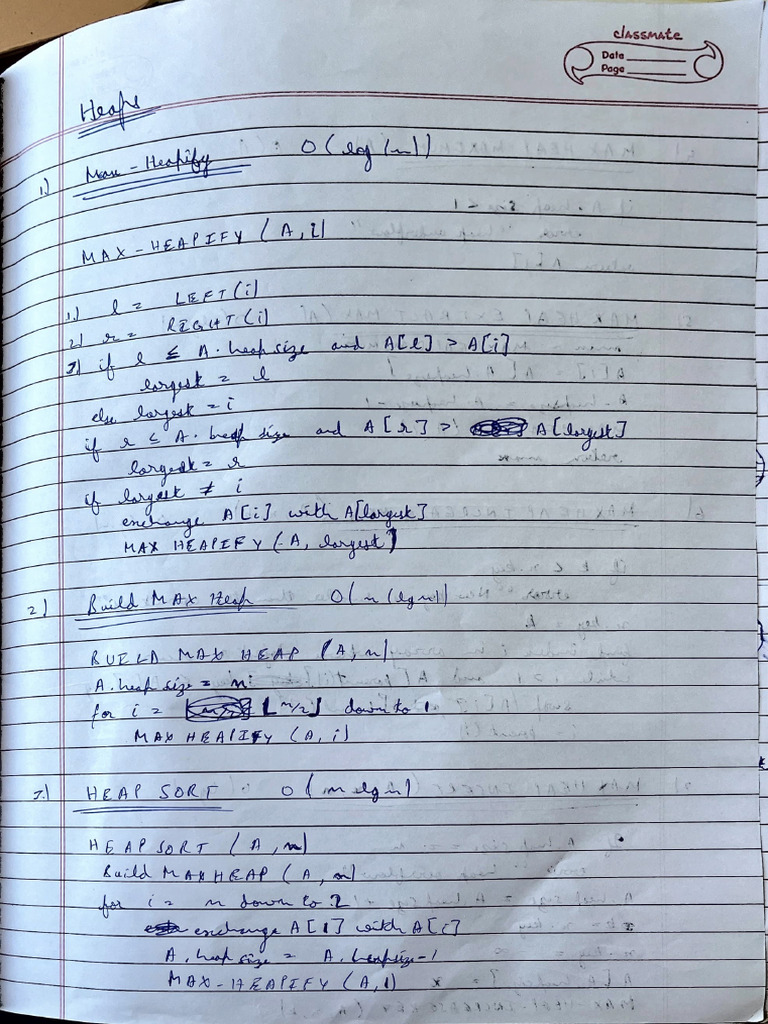 classmate
Date
Page
Heaps
1.) Max-Heapify O(log(n))
MAX-HEAPIFY (A, i)
1) l = LEFT(i)
2) r = RIGHT(i)
3) if l ≤ A.heap size and A[l] > A[i]
largest = l
else largest = i
if r ≤ A.heap size and A[r] > A[largest]
largest = r
if largest ≠ i
exchange A[i] with A[largest]
MAX HEAPIFY (A, largest)
2.) Build MAX Heap O(n(lgn))
BUILD MAX HEAP (A, n)
A.heap size = n
for i = ⌊n/2⌋ down to 1
MAX HEAPIFY (A, i)
3.) HEAP SORT : O(n lg n)
HEAP SORT (A, n)
Build MAX HEAP (A, n)
for i = n down to 2
exchange A[1] with A[i]
A.heap size = A.heapsize-1
MAX-HEAPIFY (A, 1)